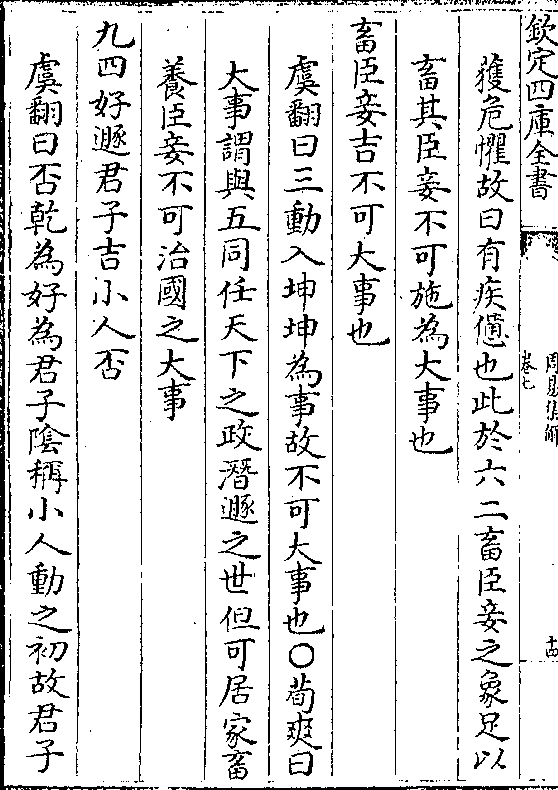 欽定四庫全書
周易集解
卷七
十四
獲危懼故曰有疾憊也此於六二畜臣妾之象足以
畜其臣妾不可施為大事也
畜臣妾吉不可大事也
虞翻曰三動入坤坤為事故不可大事也○荀爽曰
大事謂與五同任天下之政潛遯之世但可居家畜
養臣妾不可治國之大事
九四好遯君子吉小人否
虞翻曰否乾為好為君子陰稱小人動之初故君子